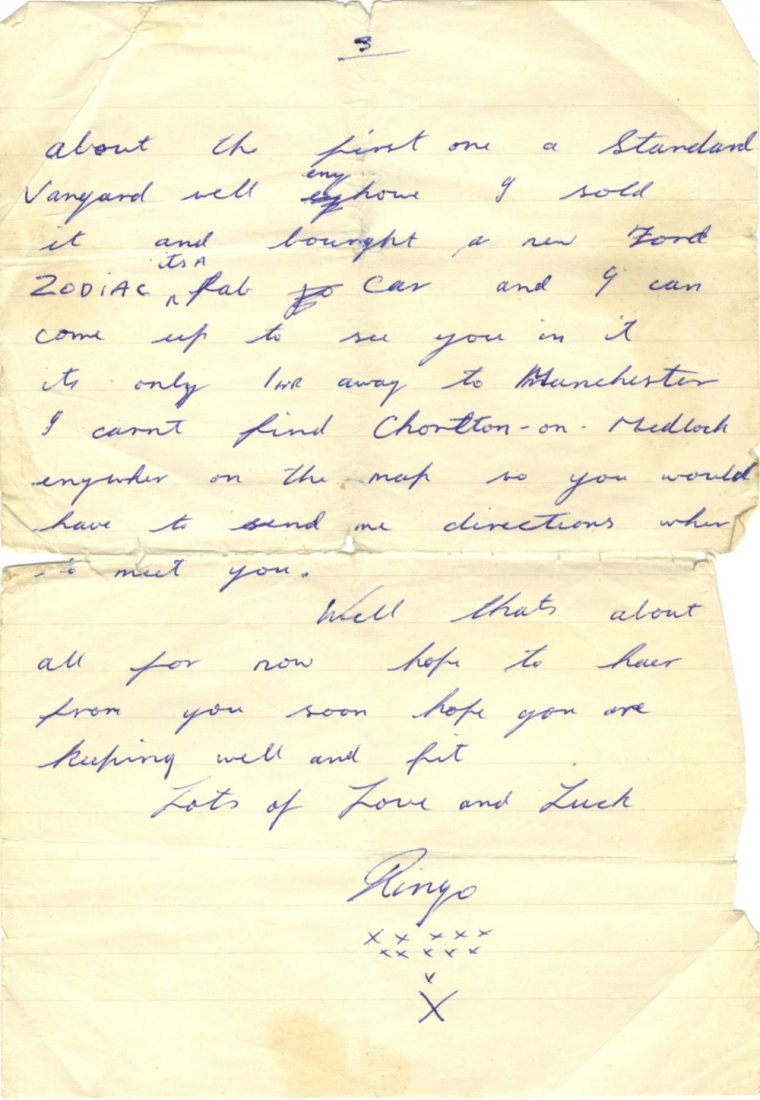 3
about the first one a Standard
Vangard well enyhowe I sold
it and bourght a new Ford
ZODIAC itsA Fab Car and I can
come up to see you in it
its only 1HR away to Manchester
I carnt find Chorlton-on-Medlock
enywher on the map so you would
have to send me directions wher
to meet you.
Well thats about
all for now hope to haer
from you soon hope you are
keeping well and fit
Lots of Love and Luck
Ringo
x x x x x
x x x x x
x
X